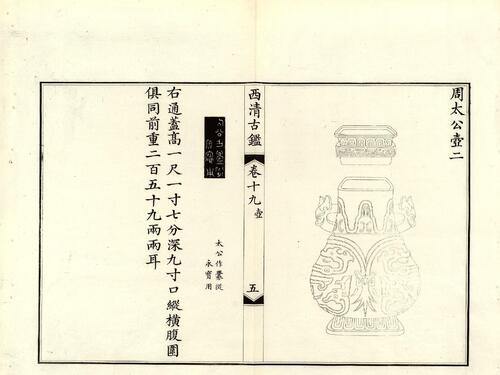 周太公壺二
西清古鑑
卷十九 壺
五
太公作
永寶用
右通蓋高一尺一寸七分深九寸口縱橫腹圍
俱同前重二百五十九兩兩耳